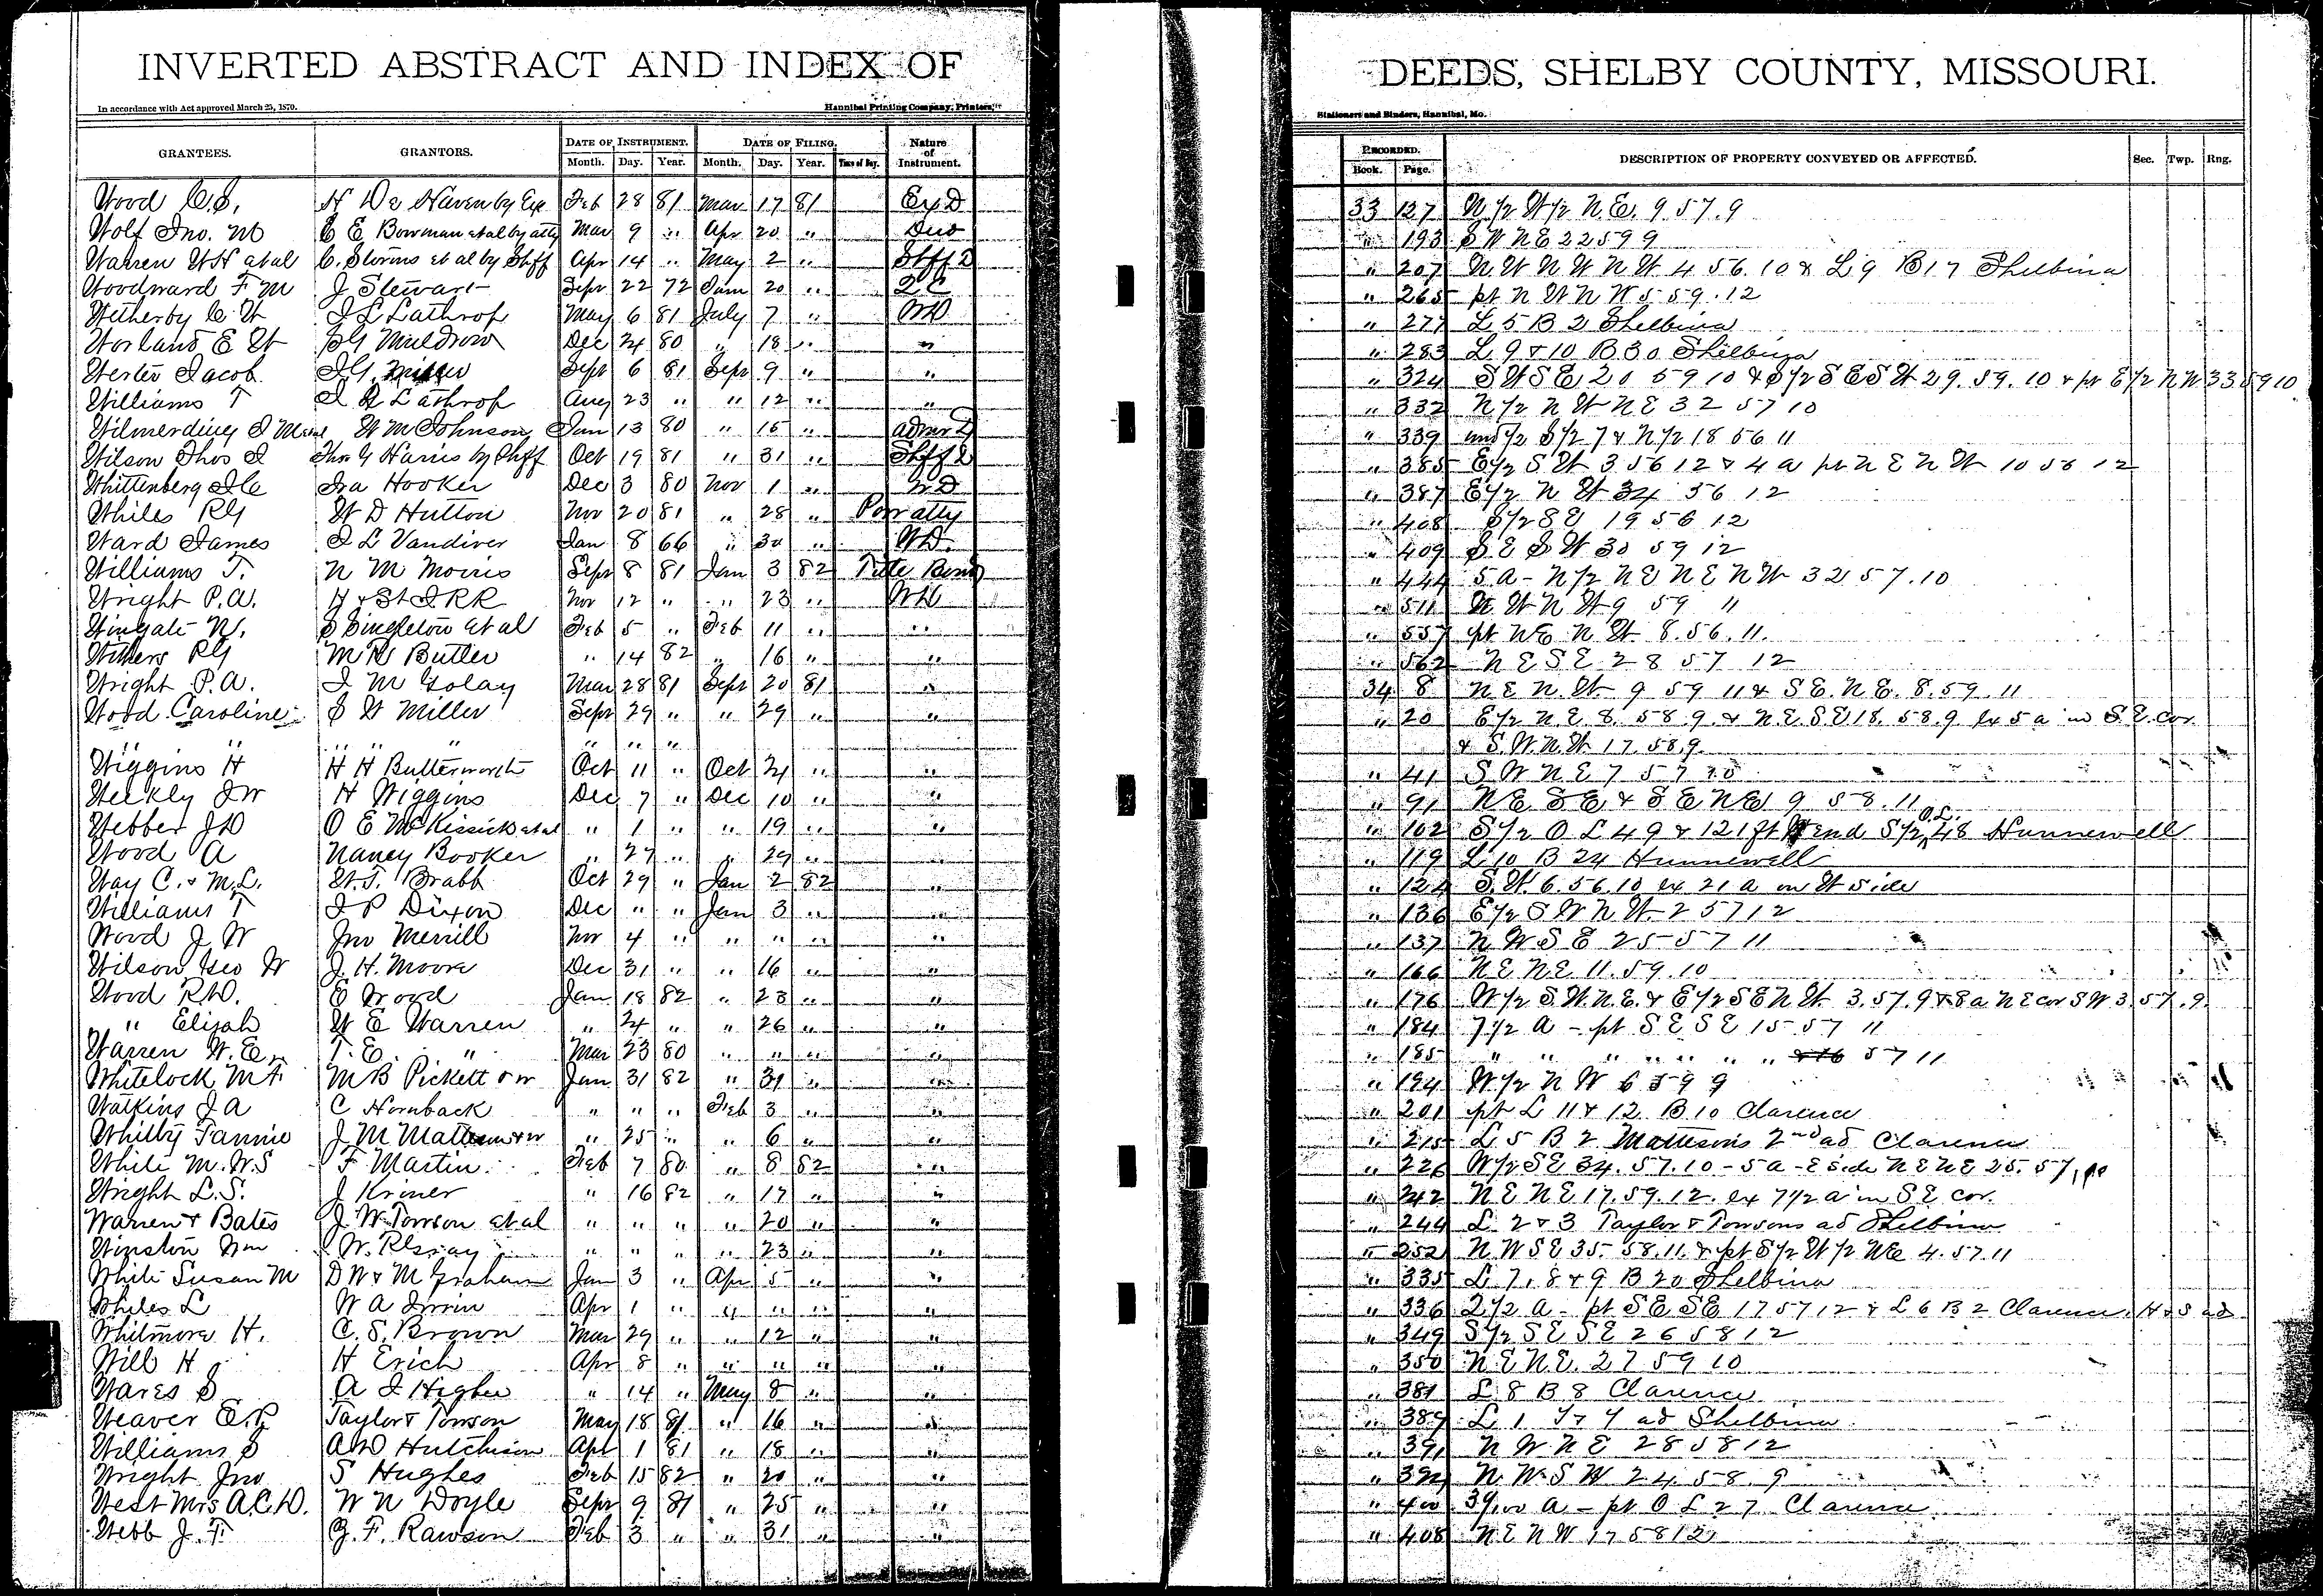 INVERTED ABSTRACT AND INDEX OF DEEDS, SHELBY COUNTY, MISSOURI.
In accordance with Act approved March 25, 1870. Hannibal Printing Company, Printers, Stationers and Binders, Hannibal, Mo.
GRANTEES. GRANTORS. DATE OF INSTRUMENT. DATE OF FILING. Nature of Instrument. RECORDED. DESCRIPTION OF PROPERTY CONVEYED OR AFFECTED. Sec. Twp. Rng.
Month. Day. Year. Month. Day. Year. Time of Day. Book. Page.
Wood C.S. H De Haven by Exe Feb 28 81 Mar 17 81 Ex D 33 127 N 1/2 W 1/2 N.E. 9 57.9
Wolf Jno. M E Bowman et al by atty Mar 9 " Apr 20 " " 193 S W N E 22 59 9
Warren W H et al C. Storms et al by Shff Apr 14 " May 2 " Shff D " 207 N W N W N W 4 56.10 & L 9 B 17 Shelbina
Woodward F M J Stewart Sept 22 72 20 " Q C " 265 pt N W N W 5 59.12
Wetherby C W J L Lathrop May 6 81 July 7 " WD " 277 L 5 B 2 Shelbina
Worland E W Muldrow Dec 24 80 " 18 " " " 283 L 9 & 10 B 30 Shelbina
Wester Jacob J G Miller Sept 6 81 Sept 9 " " " 324 S W S E 20 59 10 & S 1/2 S E S W 29. 59. 10 & pt E 1/2 N W 33 59 10
Williams T J L Lathrop Aug 23 " " 12 " " " 332 N 1/2 N W N E 32 57 10
Wilmerding J W M Johnson Jan 13 80 " 15 " Admr D " 339 und 1/2 S 1/2 7 & N 1/2 18 56 11
Wilson Thos J Thos G Harris by Shff Oct 19 81 " 31 " Shff D " 385 E 1/2 S W 3 56 12 & 4 a pt N E N W 10 56 12
Whittenberg J C Ira Hooker Dec 3 80 Nov 1 " WD " 387 E 1/2 N W 34 56 12
Whiles R G W D Hutton Nov 20 81 " 28 " Pow atty " 408 S 1/2 S E 19 56 12
Ward James J L Vandiver Jan 8 66 " 30 " WD. " 409 S E S W 30 59 12
Williams T. N M Morris Sept 8 81 Jan 3 82 Title Bond " 444 5 a - N 1/2 N E N E N W 32 57.10
Wright P.A. H & St J RR Nov 12 " " 23 " WD " 511 N W N W 9 59 11
Wingate N. S Singleton et al Feb 5 " Feb 11 " " " 557 pt N E N W 8.56.11.
Withers R G M R Butler " 14 82 " 16 " " " 562 N E S E 28 57 12
Wright P.A. J M Golay Mar 28 81 Sept 20 81 " 34 8 N E N. W 9 59 11 & S E. N E. 8.59.11
Wood Caroline S W Miller Sept 29 " " 29 " " " 20 E 1/2 N E 8. 58 9. & N E S E 18. 58.9 ex 5 a in S.E. cor
" " " " " " " " & S.W. N.W. 17.58.9.
Wiggins H H H Butterworth Oct 11 " Oct 21 " " " 41 S W N E 7 57 10
Weekly J W H Wiggins Dec 7 " Dec 10 " " " 91 N E S E & S E N E 9 58.11
Webber J D O E McKissick et al " 1 " " 19 " " " 102 S 1/2 O L 49 & 121 ft W end S 1/2 O.L. 48 Hunnewell
Wood A Nancy Booker " 27 " " 29 " " " 119 L 10 B 24 Hunnewell
Way C. & M.L. W.T. Brabb Oct 29 " Jan 2 82 " " 124 S.W. 6.56.10 ex 21 a on W side
Williams T J P Dixon Dec " " Jan 3 " " " 136 E 1/2 S W N W 2 57 12
Wood J W Jno Merrill Nov 4 " " " " " " 137 N W S E 25 57 11
Wilson Geo W J. H. Moore Dec 31 " " 16 " " " 166 N E N E 11.59.10
Wood R D. E Wood Jan 18 82 " 23 " " " 176 W 1/2 S.W. N.E. & E 1/2 S E N W 3.57.9 & 8 a N E cor S W 3.57.9.
" Elijah W E Warren " 24 " " 26 " " " 184 7 1/2 a - pt S E S E 15 57 11
Warren W.E. T.E. " Mar 23 80 " " " " " 185 " " " " " " " & 16 57 11
Whitelock M F M B Pickett & w Jan 31 82 " 31 " " " 194 W 1/2 N W 6 59 9
Watkins J A C Hornback " " " Feb 3 " " " 201 pt L 11 & 12 B 10 Clarence
Whilby Fannie J M & w " 25 " " 6 " " " 215 L 5 B 2 Mattesons 2nd ad Clarence
White M.W.S F Martin Feb 7 80 " 8 82 " " 226 W 1/2 S E 34.57.10 - 5 a - E side N E N E 25.57.10
Wright L.S. J Kriner " 16 82 " 17 " " " 242 N E N E 17.59.12. ex 7 1/2 a in S E cor.
Warren & Bates J W Towson et al " " " " 20 " " " 244 L 2 & 3 Taylor & Towsons ad Shelbina
Winston Wm " " " " 23 " " " 252 N W S E 35. 58.11. & pt S 1/2 W 1/2 N E 4.57.11
White Susan M D W & M Graham Jan 3 " Apr 5 " " " 335 L 7, 8 & 9 B 20 Shelbina
Whiles L W A Irwin Apr 1 " " " " " " 336 2 1/2 a - pt S E S E 17 57 12 & L 6 B 2 Clarence. H & S ad
Whitmore H. C. S. Brown Mar 29 " " 12 " " " 349 S 1/2 S E S E 26 58 12
Will H H Erich Apr 8 " " " " " " 350 N E N E. 27 59 10
Wares S A J Higbee " 14 " May 8 " " " 381 L 8 B 8 Clarence
Weaver E.R Taylor & Towson May 18 81 " 16 " " " 389 L 1 T & T ad Shelbina
Williams S A D Hutchison Apr 1 81 " 18 " " " 391 N W N E 28 58 12
Wright Jno S Hughes Feb 15 82 " 20 " " " N W S W 24 58.9
West Mrs A.C.D. W N Doyle Sept 9 81 " 25 " " " 400 39/100 a - pt O L 27 Clarence
Webb J. T. G. F. Rawson Feb 3 " " 31 " " " 408 N E N W 17 58 12